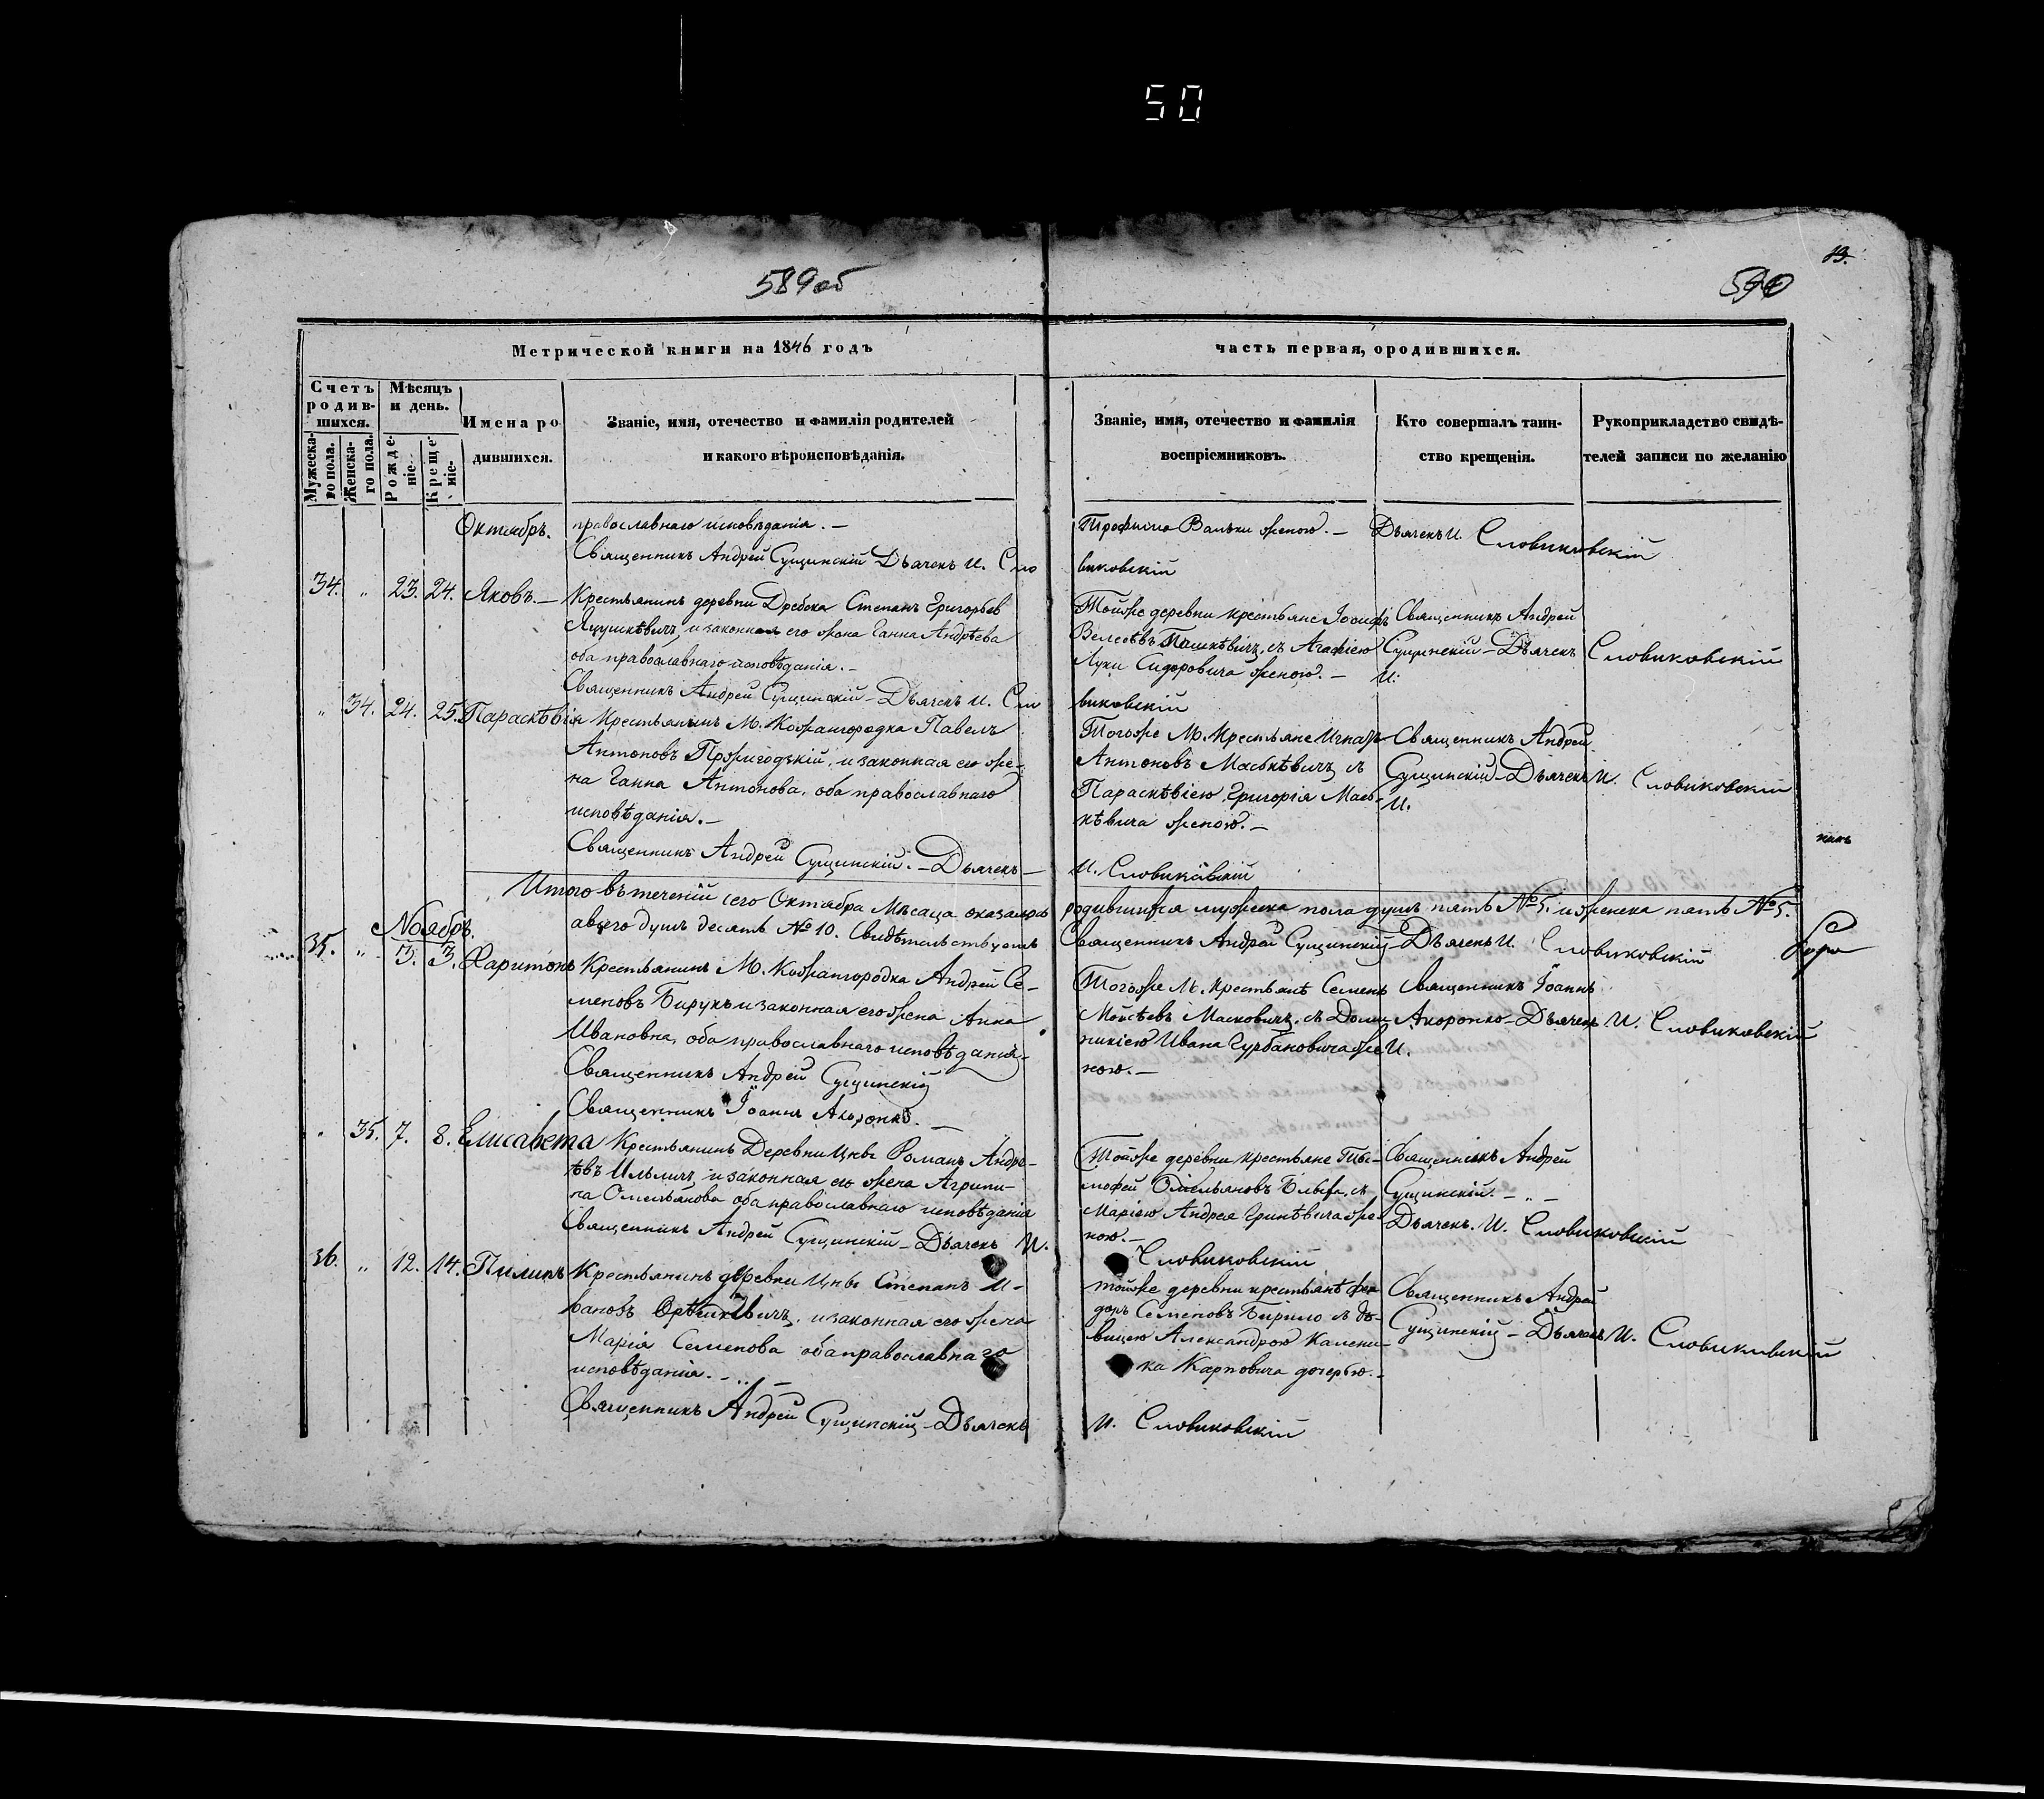 50
13.
589 об
590
Метрической книги на 1846 годъ
часть первая, ородившихся.
Счетъ родив-шихся.
Мужеска-го пола.
Женска-го пола.
Мѣсяцъ и день.
Рожде-ніе.
Креще-ніе.
Имена ро
дившихся.
Званіе, имя, отечество и фамилія родителей
и какого вѣроисповѣданія.
Званіе, имя, отечество и фамилія
воспріемниковъ.
Кто совершалъ таин-
ство крещенія.
Рукоприкладство свидѣ-
телей записи по желанію
Октябръ.
православнаго исповѣданія. —
Священникъ Андрей Сущинскій Дьячекъ И. Сло
Трофима женою. —
виковскій
Дьячекъ И. Словиковскій
34. „ 23. 24. Яковъ. —
Крестьянинъ деревни Дребска Степанъ Григорьев
Яцушкѣвичъ, и законная его жена Ганна Андрѣева
оба православнаго исповѣданія. —
Священникъ Андрей Сущинскій — Дьячекъ И. Сло
Тойже деревни крестьяне Іосифъ
Пашкѣвичъ, съ Агафіею
Луки Сидоровича женою. —
виковскій
Священникъ Андрей
Сущинскій — Дьячекъ
И.
Словиковскій
„ 34. 24. 25. Параскѣвія
Крестьянинъ М. Кожангородка Павелъ
Антоновъ и законная его же-
на Ганна Антонова, оба православнаго
исповѣданія. —
Священникъ Андрей Сущинскій. — Дьячекъ —
Тогоже М. Крестьяне Игнатъ
Антоновъ Маськѣвичъ съ
Параскѣвіею Григорія Mась-
кѣвича женою. —
И. Словиковскій
Священникъ Андрей
Сущинскій — Дьячекъ
И.
И. Словиковскій
Итого въ теченій сего Октября Мѣсаца оказалось
родившихся мужеска пола душъ пять №5. и женска пять №5.
авсего душъ десять № 10. Свидѣтельствуемъ
Священникъ Андрей Сущинскій — Дьячекъ И. Словиковскій
Ноябръ.
35. „ 3. 3. Харитонъ
Крестьянинъ М. Кожангородка Андрей Се-
меновъ Бирукъ и законная его жена Анна
Ивановна, оба православнаго исповѣданія —
Священникъ Андрей Сущинскій
Священникъ Іоаннъ Акоронко. —
Тогоже М. крестьянѣ Семенъ
Мойсѣевъ Масковичъ, съ Доми
никіею Ивана Гурбановича же
ною. —
Священникъ Іоаннъ
Акоронко — Дьячекъ
И.
И. Словиковскій
„ 35. 7. 8. Елисавета
Крестьянинъ Деревни Цны Романъ Андре-
ѣвъ Ильичъ, и законная его жена Агрипи-
на Омельянова оба православнаго исповѣданія
Священникъ Андрей Сущинскій — Дьячекъ И.
Тойже деревни крестьяне Ти-
мофей Омельяновъ съ
Маріею Андрея Гринѣвича же
ною. —
Словиковскій
Священникъ Андрей
Сущинскій. — „ —
Дьячекъ. И. Словиковскій
36. „ 12. 14. Пилипъ
Крестьянинъ деревни Цны Степанъ И-
вановъ и законная его жена
Марія Семенова оба православнаго
исповѣданія. — .. —
Священникъ Андрей Сущинскій — Дьячекъ
тойже деревни крестьянѣ Фео
доръ Семеновъ Бирило съ дѣ-
вицею Александрою Калени-
ка Карповича дочерью. —
И. Словиковскій
Священникъ Андрей
Сущинскій — Дьячекъ
И. Словиковскій